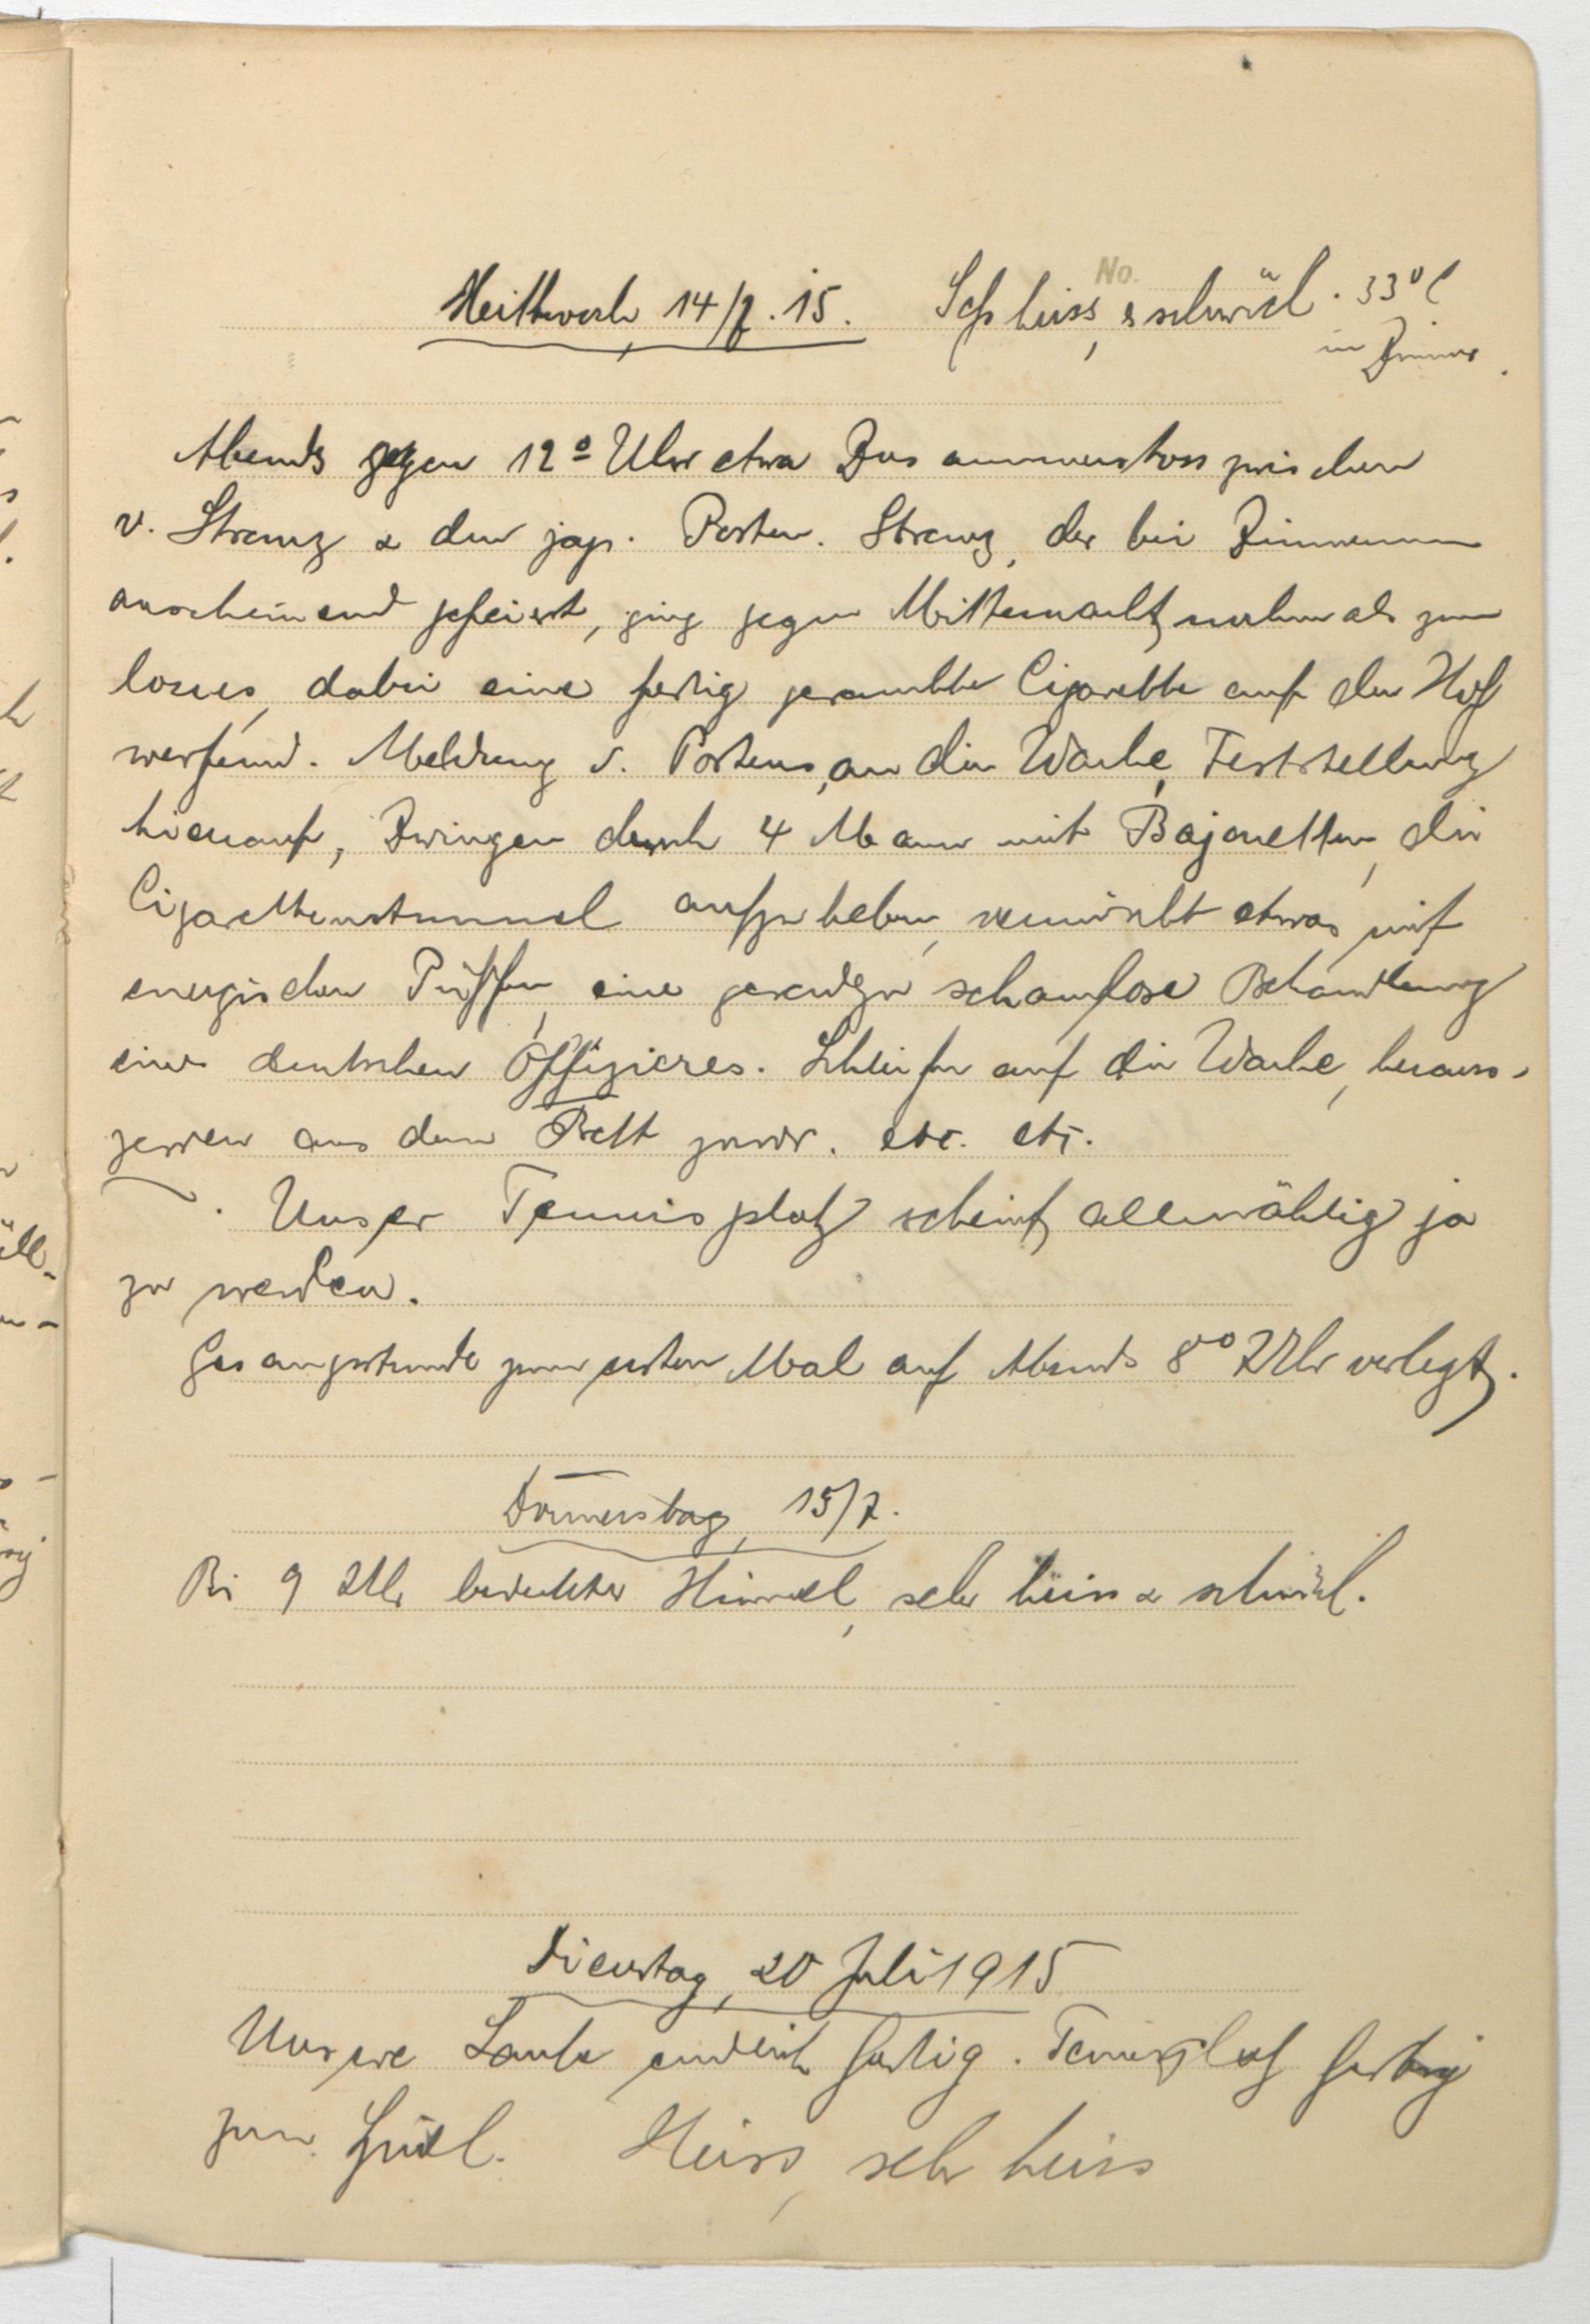 Mittwoch, 14/7.15. Sehr heiss, & schwül. 33°C
No.
im Zimmer.
Abends gegen 12° Uhr etwa Zusammenstoss zwischen
v. Stranz & den jap. Posten. Stranz, der bei Zimmermann
anscheinend gefeiert, ging gegen Mitternacht nochmals zum
locus, dabei eine fertig gerauchte Cigarette auf den Hof
werfend. Meldung d. Postens, an die Wache, Feststellung
hierauf, Zwingen durch 4 Mann mit Bajonetten, die
Cigarettenstummel aufzuheben, vermischt etwas mit
energischen Püffen, eine geradezu schamlose Behandlung
eines deutschen Offizieres. Schleifen auf die Wache, heraus-
zerren aus dem Bett zuvor. etc. etc.
Unser Tennisplatz scheint allmählig ja
zu werden.
Gesangsstunde zum ersten Mal auf Abends 8°° Uhr verlegt.
Donnerstag, 15/7.
Bis 9 Uhr bedeckter Himmel, sehr heiss & schwül.
Dienstag, 20 Juli 1915
Unsere Laube endlich fertig. Tennisplatz fertig
zum Spiel. Heiss, sehr heiss